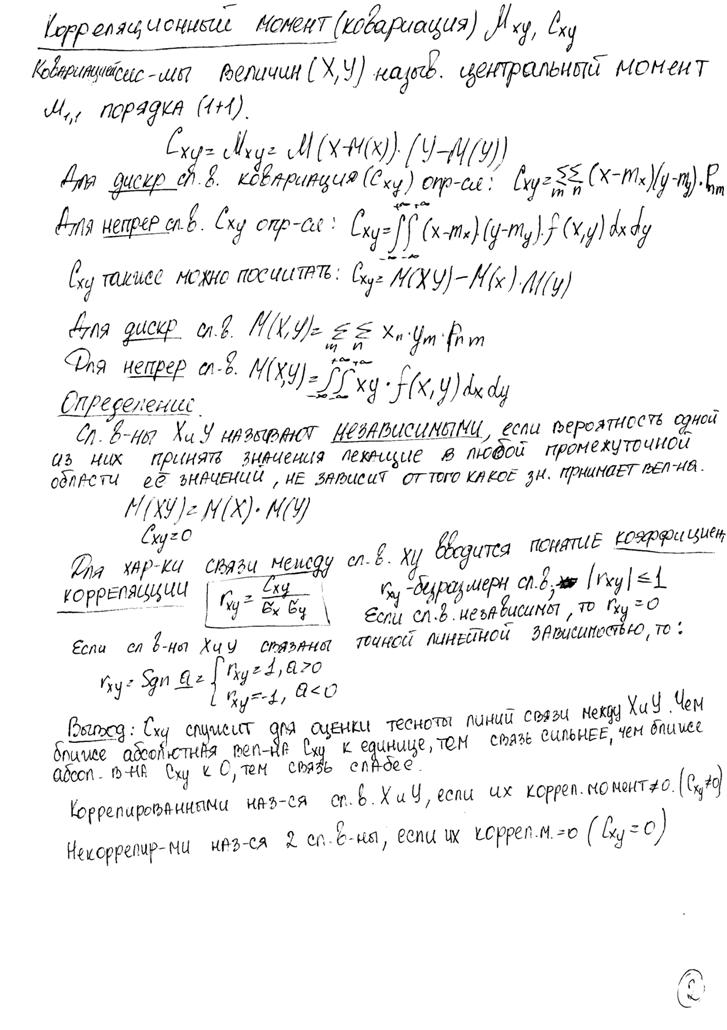 Корреляционный момент (ковариация) Mxy, Cxy
Ковариацией сис-мы величин (X,Y) назыв. центральный момент
M1,1 порядка (1+1).
Cxy = Mxy = M(X-M(X))·(Y-M(Y))
Для дискр сл.в. ковариация (Cxy) опр-ся: Cxy = ∑m ∑n (x-mx)(y-my)·Pnm
Для непрер сл.в. Cxy опр-ся: Cxy = ∫-∞+∞ ∫-∞+∞ (x-mx)·(y-my)·f(x,y)dxdy
Cxy также можно посчитать: Cxy = M(XY)-M(x)·M(y)
Для дискр сл.в. M(X,Y) = ∑m ∑n xn·ym·Pnm
Для непрер сл.в. M(X,Y) = ∫-∞+∞ ∫-∞+∞ xy·f(x,y)dxdy
Определение.
Сл. в-ны X и Y называют независимыми, если вероятность одной
из них принять значения лежащие в любой промежуточной
области её значений, не зависит от того какое зн. принимает вел-на.
M(XY) = M(X)·M(Y)
Cxy=0
Для хар-ки связи между сл.в. xy вводится понятие коэффициен
корреляции rxy = Cxy / σx σy rxy - безразмерн сл.в, |rxy| ≤ 1
Если сл.в. независимы, то rxy = 0
Если сл в-ны X и Y связаны точной линейной зависимостью, то:
rxy = Sgn a = { rxy = 1, a>0
rxy = -1, a<0
Вывод: Cxy служит для оценки тесноты линий связи между X и Y. Чем
ближе абсолютная вел-на Cxy к единице, тем связь сильнее, чем ближе
абсол. в-на Cxy к 0, тем связь слабее.
Коррелированными наз-ся сл.в. X и Y, если их коррел.момент ≠0. (Cxy≠0)
Некоррелир-ми наз-ся 2 сл.в-ны, если их коррел.м.=0 (Cxy=0)
2